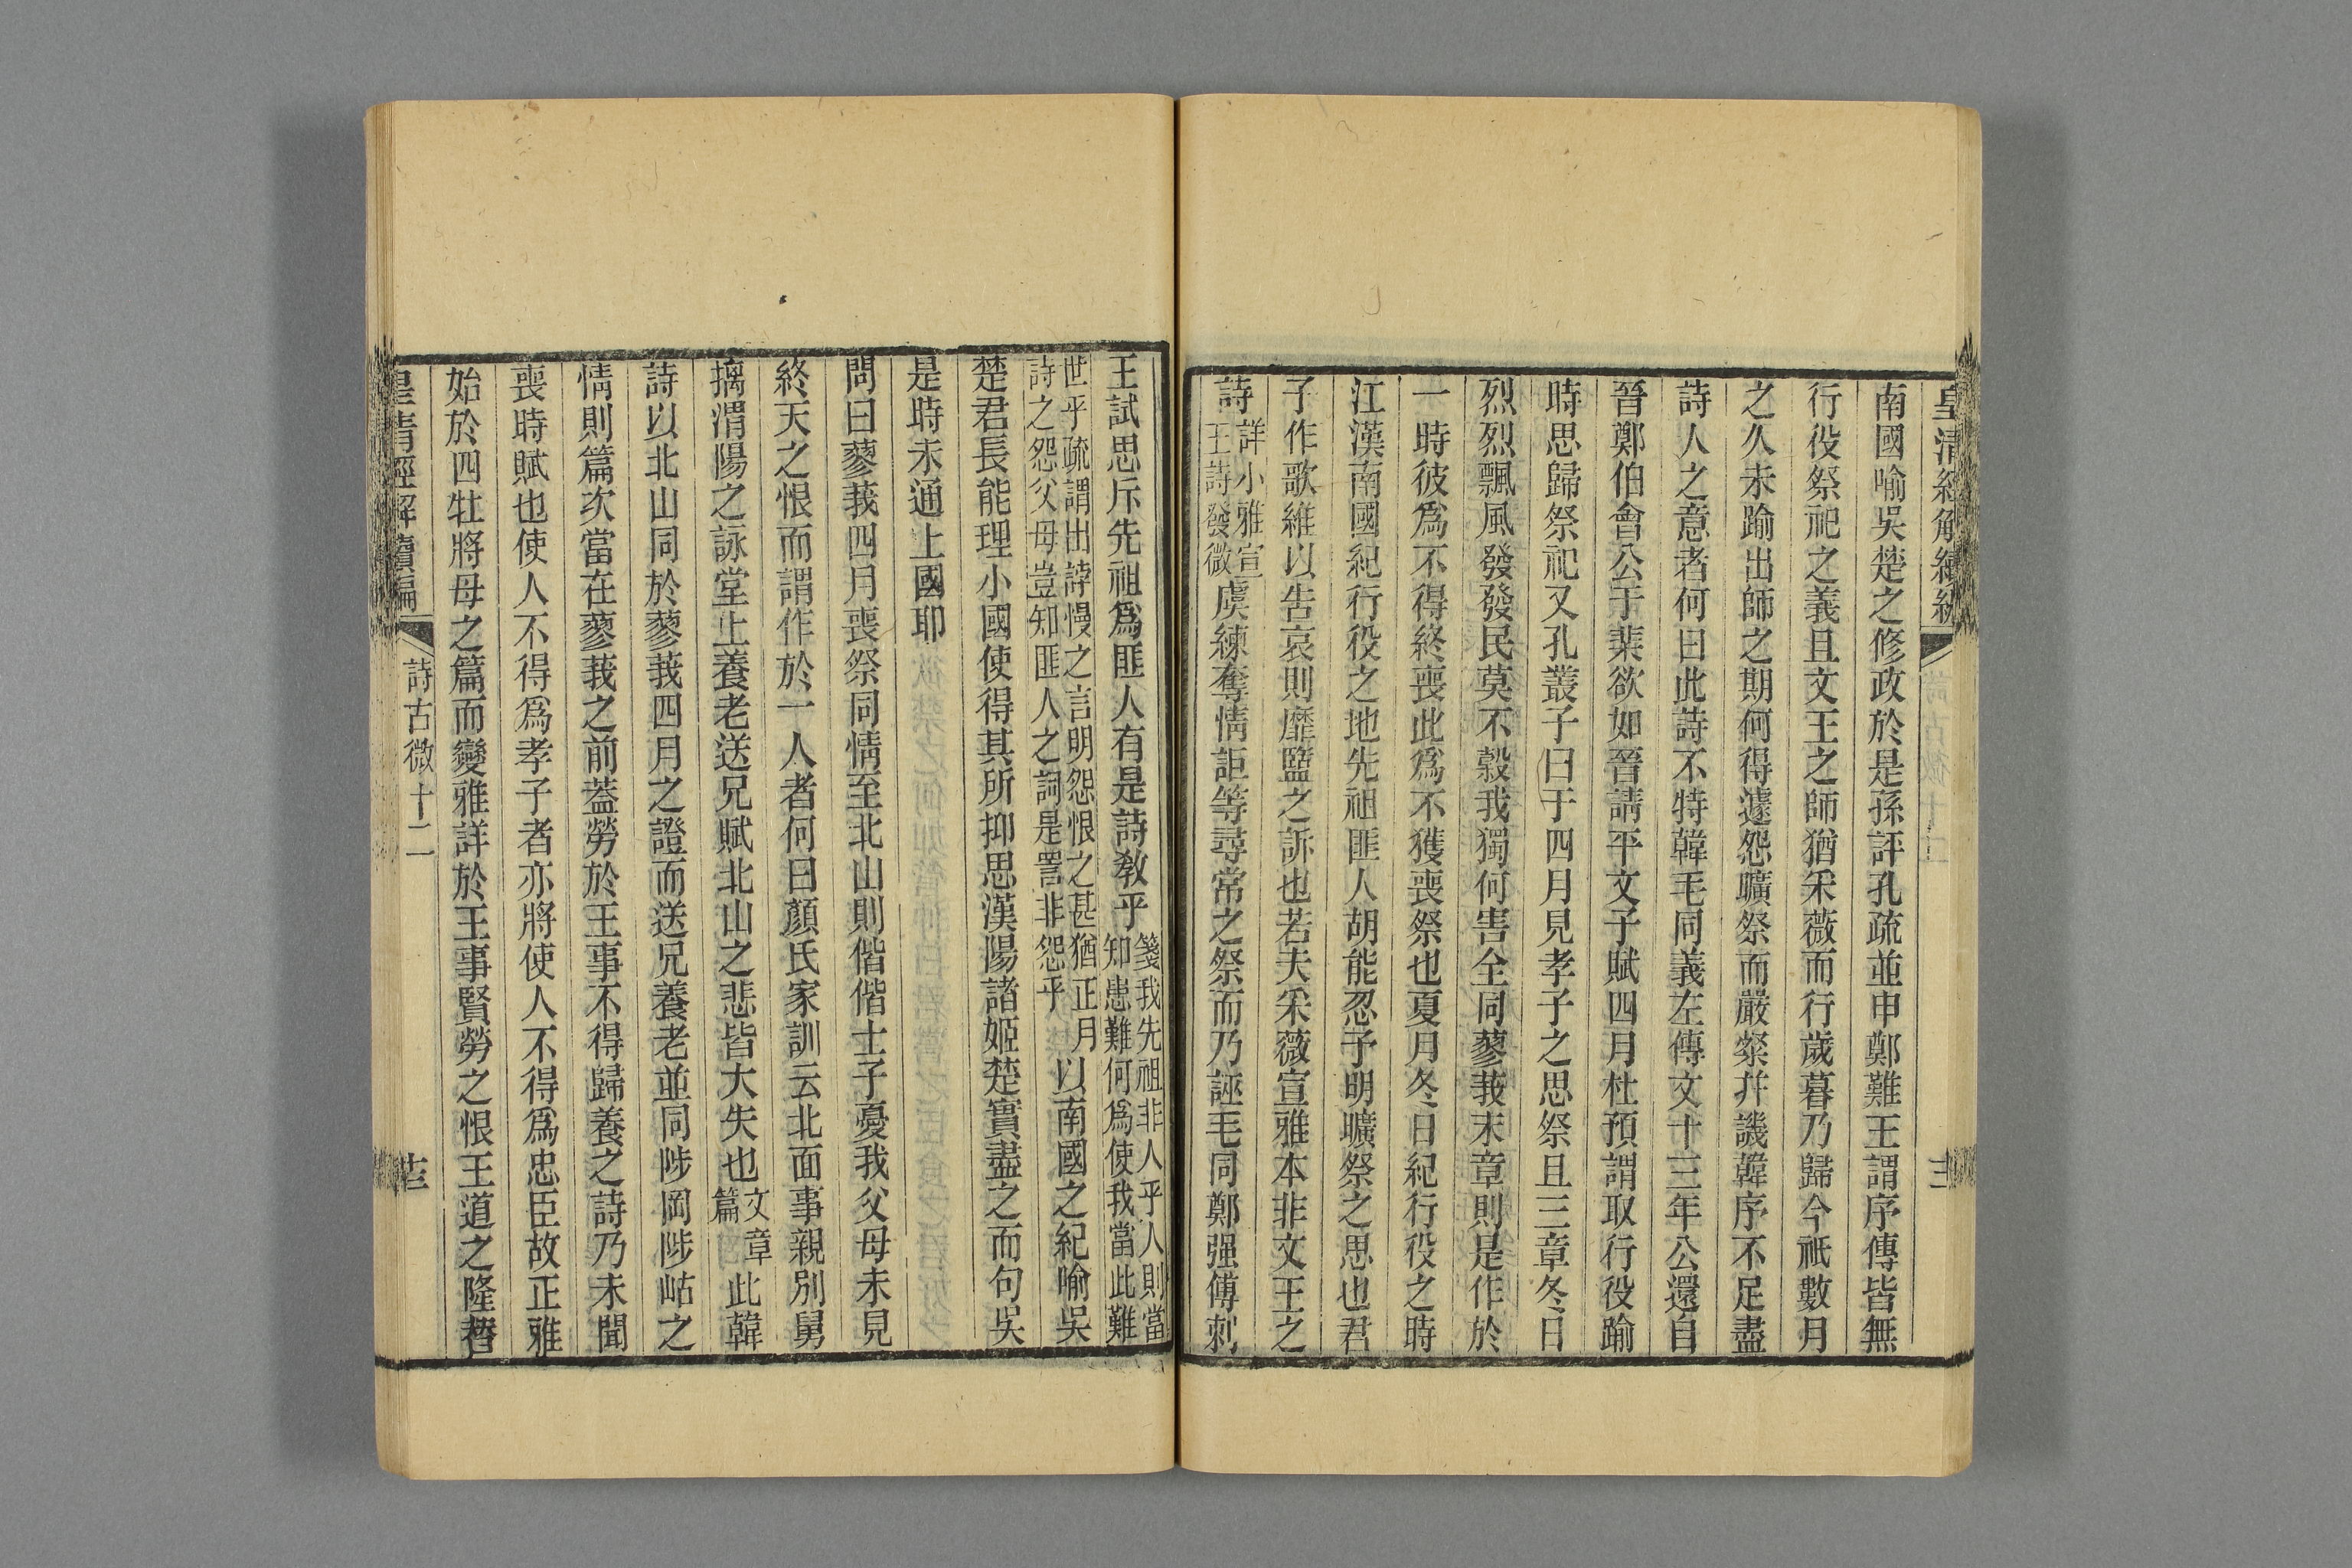 皇清經解續編
南國喻吳楚之修政於是孫評孔疏並申鄭難王謂序傳皆無
行役祭祀之義且文王之師猶采薇而行歲暮乃歸今祇數月
之久未踰出師之期何得遽怨曠祭而嚴粲幷譏韓序不足盡
詩人之意者何曰此詩不特韓毛同義左傳文十三年公還自
晉鄭伯會公于棐欲如晉請平文子賦四月杜預謂取行役踰
時思歸祭祀又孔叢子曰于四月見孝子之思祭且三章冬日
烈烈飄風發發民莫不穀我獨何害全同蓼莪末章則是作於
一時彼爲不得終喪此爲不獲喪祭也夏月冬日紀行役之時
江漢南國紀行役之地先祖匪人胡能忍予明曠祭之思也君
子作歌維以告哀則靡盬之訴也若夫采薇宣雅本非文王之
詩詳小雅宣王詩發微虞練奪情詎等尋常之祭而乃誣毛同鄭强傅刺
王試思斥先祖爲匪人有是詩敎乎箋我先祖非人乎人則當知患難何爲使我當此難
世乎疏謂出諄慢之言明怨恨之甚猶正月詩之怨父母豈知匪人之詞是詈非怨乎以南國之紀喻吳
楚君長能理小國使得其所抑思漢陽諸姬楚實盡之而句吳
是時未通上國耶
問曰蓼莪四月喪祭同情至北山則偕偕士子憂我父母未見
終天之恨而謂作於一人者何曰顏氏家訓云北面事親別舅
摛渭陽之詠堂上養老送兄賦北山之悲皆大失也文章篇此韓
詩以北山同於蓼莪四月之證而送兄養老並同陟岡陟岵之
情則篇次當在蓼莪之前蓋勞於王事不得歸養之詩乃未聞
喪時賦也使人不得爲孝子者亦將使人不得爲忠臣故正雅
始於四牡將母之篇而變雅詳於王事賢勞之恨王道之隆替
皇清經解續編 詩古微十二